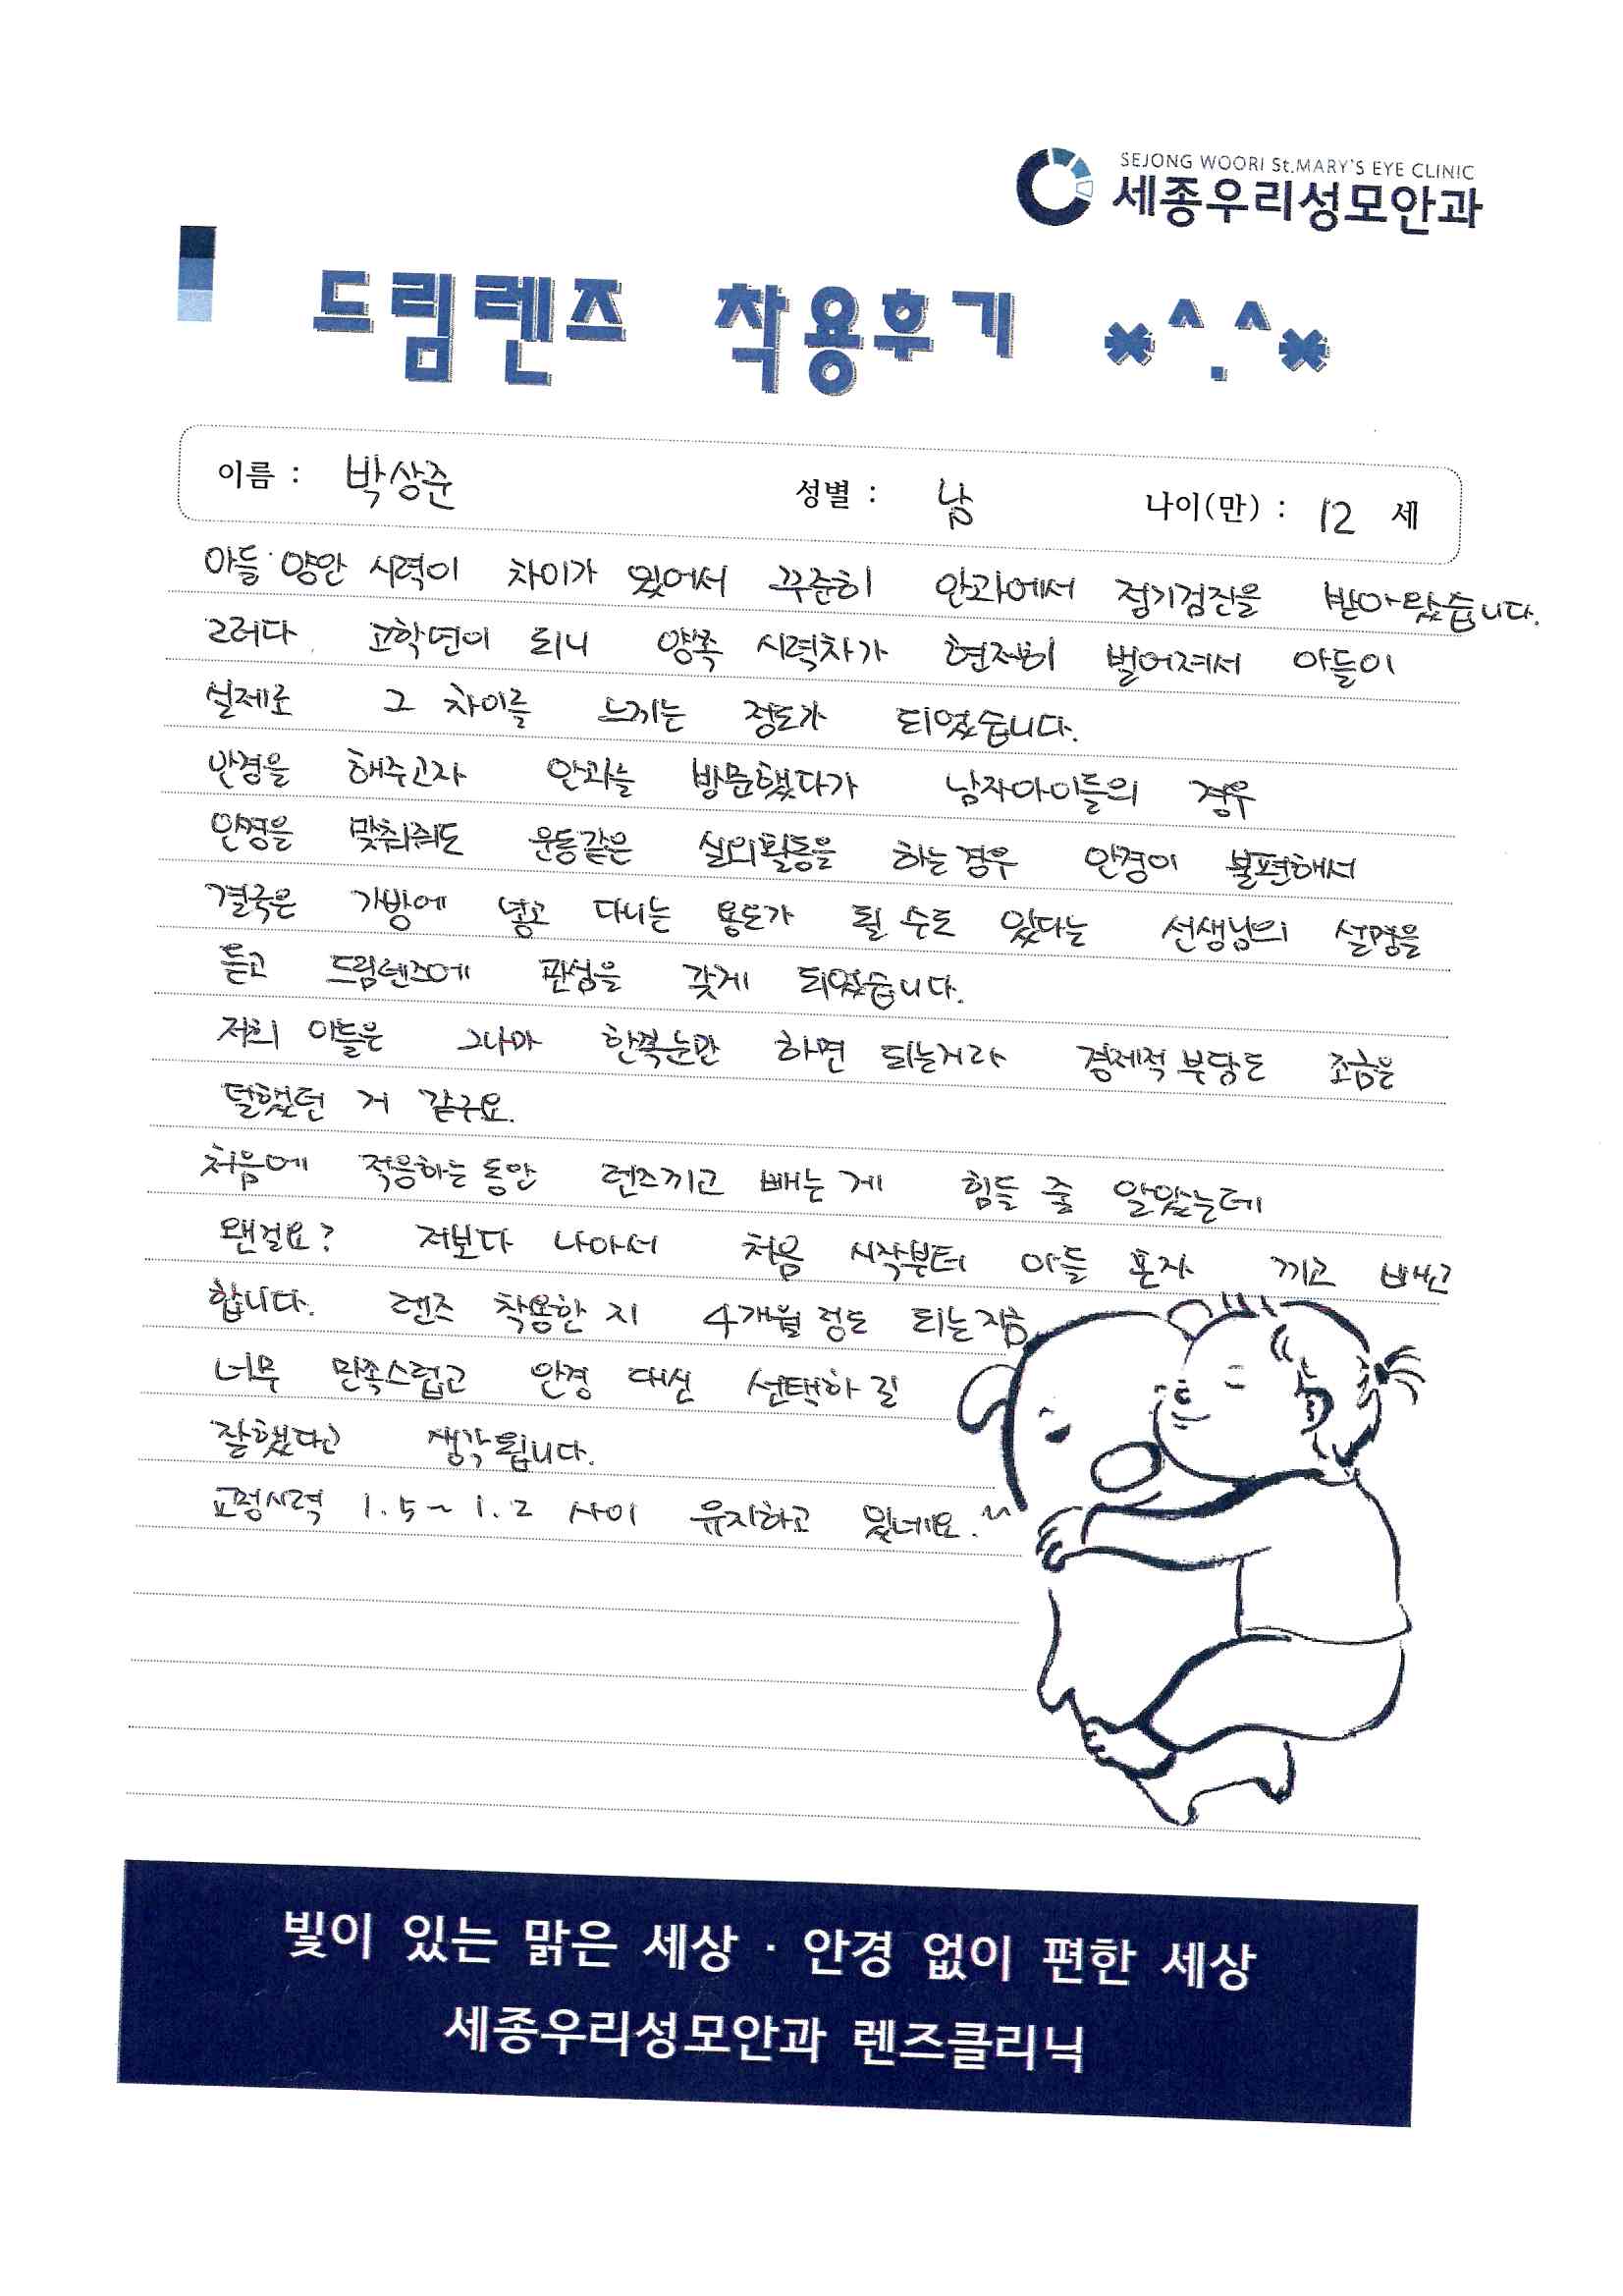 SEJONG WOORI St.MARY'S EYE CLINIC
세종우리성모안과
드림렌즈 착용후기 *^.^*
이름 : 박상준 성별 : 남 나이(만) : 12 세
아들 양안 시력이 차이가 있어서 꾸준히 안과에서 정기검진을 받아왔습니다.
그러다 고학년이 되니 양쪽 시력차가 현저히 벌어져서 아들이
실제로 그 차이를 느끼는 정도가 되었습니다.
안경을 해주고자 안과를 방문했다가 남자아이들의 경우
안경을 맞춰줘도 운동같은 실외활동을 하는 경우 안경이 불편해서
결국은 가방에 넣고 다니는 용도가 될 수도 있다는 선생님의 설명을
듣고 드림렌즈에 관심을 갖게 되었습니다.
저희 아들은 그나마 한쪽눈만 하면 되는거라 경제적 부담도 조금은
덜했던 거 같구요.
처음에 적응하는 동안 렌즈끼고 빼는 게 힘들 줄 알았는데
왠걸요? 저보다 나아서 처음 시작부터 아들 혼자 끼고 빼고
합니다. 렌즈 착용한 지 4개월 정도 되는 지금
너무 만족스럽고 안경 대신 선택하길
잘했다고 생각됩니다.
교정시력 1.5~1.2 사이 유지하고 있네요.^^
빛이 있는 맑은 세상 · 안경 없이 편한 세상
세종우리성모안과 렌즈클리닉